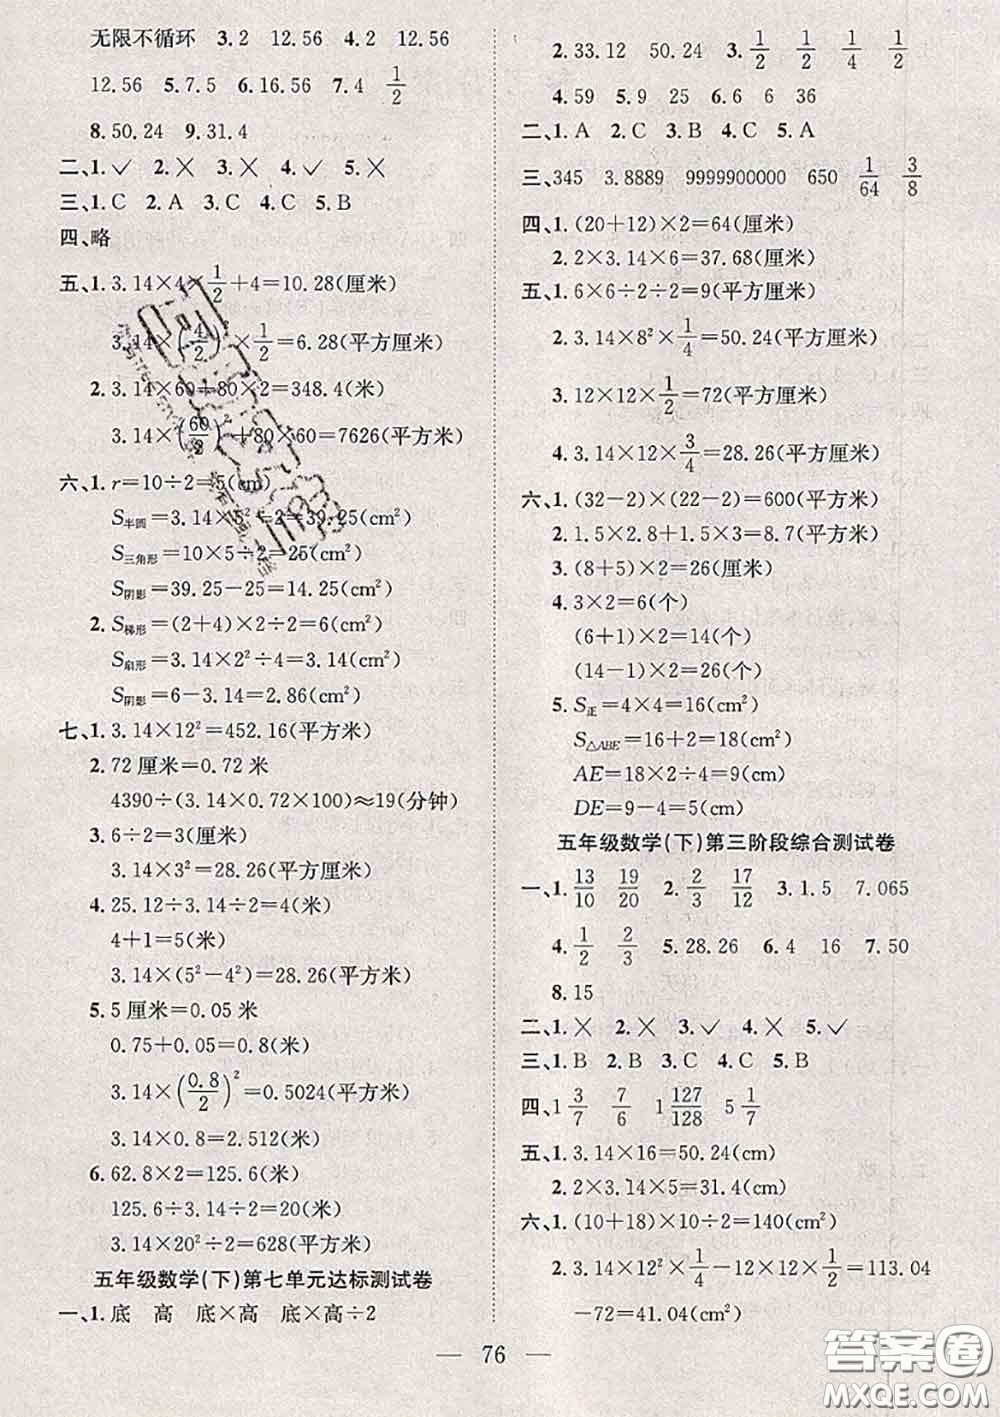 无限不循环 3.2 12.56 4.2 12.56
12.56 5.7.5 6.16.56 7.4 1/2
8.50.24 9.31.4
二、1.✓ 2.✕ 3.✕ 4.✓ 5.✕
三、1.C 2.A 3.C 4.C 5.B
四、略
五、1.3.14×4×1/2+4=10.28(厘米)
3.14×(4/2)²×1/2=6.28(平方厘米)
2.3.14×60+80×2=348.4(米)
3.14×(60/2)²+80×60=7626(平方米)
六、1.r=10÷2=5(cm)
S半圆=3.14×5²÷2=39.25(cm²)
S三角形=10×5÷2=25(cm²)
S阴影=39.25-25=14.25(cm²)
2.S梯形=(2+4)×2÷2=6(cm²)
S扇形=3.14×2²÷4=3.14(cm²)
S阴影=6-3.14=2.86(cm²)
七、1.3.14×12²=452.16(平方米)
2.72厘米=0.72米
4390÷(3.14×0.72×100)≈19(分钟)
3.6÷2=3(厘米)
3.14×3²=28.26(平方厘米)
4.25.12÷3.14÷2=4(米)
4+1=5(米)
3.14×(5²-4²)=28.26(平方米)
5.5厘米=0.05米
0.75+0.05=0.8(米)
3.14×(0.8/2)²=0.5024(平方米)
3.14×0.8=2.512(米)
6.62.8×2=125.6(米)
125.6÷3.14÷2=20(米)
3.14×20²÷2=628(平方米)
五年级数学(下)第七单元达标测试卷
一、1.底 高 底×高 底×高÷2
2.33.12 50.24 3.1/2 1/2 1/4 1/2
4.59 5.9 25 6.6 6 36
二、1.A 2.C 3.B 4.C 5.A
三、345 3.8889 9999900000 650 1/64 3/8
四、1.(20+12)×2=64(厘米)
2.2×3.14×6=37.68(厘米)
五、1.6×6÷2÷2=9(平方厘米)
2.3.14×8²×1/4=50.24(平方厘米)
3.12×12×1/2=72(平方厘米)
4.3.14×12×3/4=28.26(平方厘米)
六、1.(32-2)×(22-2)=600(平方米)
2.1.5×2.8+1.5×3=8.7(平方米)
3.(8+5)×2=26(厘米)
4.3×2=6(个)
(6+1)×2=14(个)
(14-1)×2=26(个)
5.S正=4×4=16(cm²)
S△ABE=16+2=18(cm²)
AE=18×2÷4=9(cm)
DE=9-4=5(cm)
五年级数学(下)第三阶段综合测试卷
一、1.13/10 19/20 2.2/3 17/12 3.1.5 7.065
4.1/2 2/3 5.28.26 6.4 16 7.50
8.15
二、1.✕ 2.✕ 3.✓ 4.✕ 5.✓
三、1.B 2.B 3.C 4.C 5.B
四、1 3/7 7/6 1 127/128 5 1/7
五、1.3.14×16=50.24(cm)
2.2×3.14×5=31.4(cm)
六、1.(10+18)×10÷2=140(cm²)
2.3.14×12×12×1/4-12×12×1/2=113.04
-72=41.04(cm²)
— 76 —
答案圈
MXQE.COM